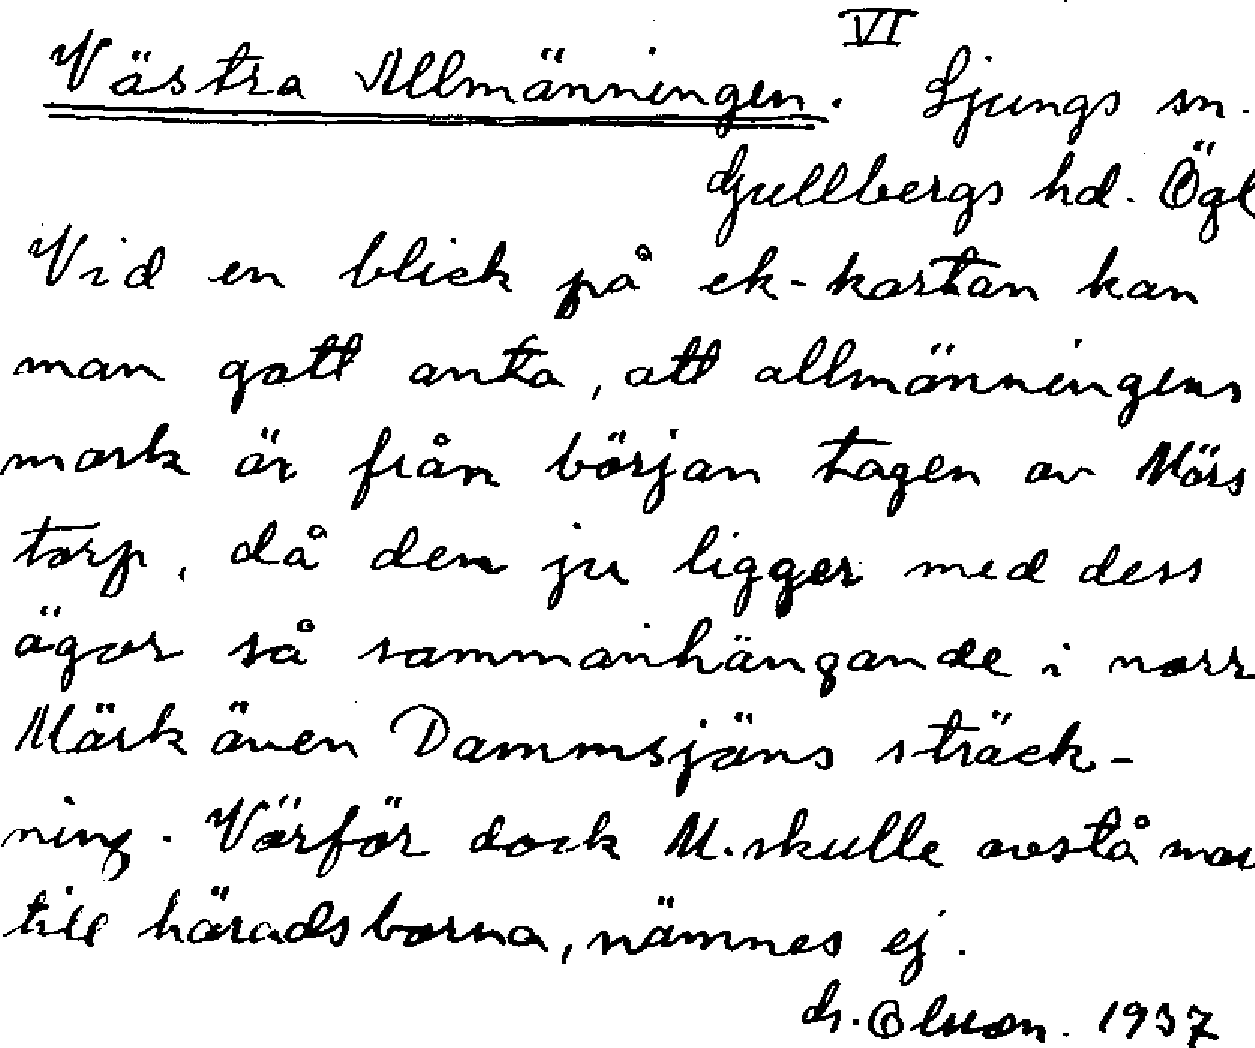 VI
Västra Allmänningen. Ljungs sn.
Gullbergs hd. Ögl
Vid en blick på ek-kartan kan
man gott anta, att allmänningens
mark är från början tagen av Mörs
torp, då den ju ligger med dess
ägor så sammanhängande i norr
Märk även Dammsjäns sträck-
ning. Varför dock M. skulle avstå mar
till häradsborna, nämnes ej.
G. Olsson. 1937